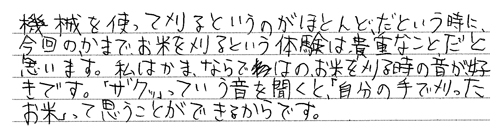 機械を使って刈るというのがほとんどだという時に、
今回のかまでお米を刈るという体験は貴重なことだと
思います。私はかまならではの、お米を刈る時の音が好
きです。「ザクッ」っていう音を聞くと、「自分の手で刈った
お米」って思うことができるからです。